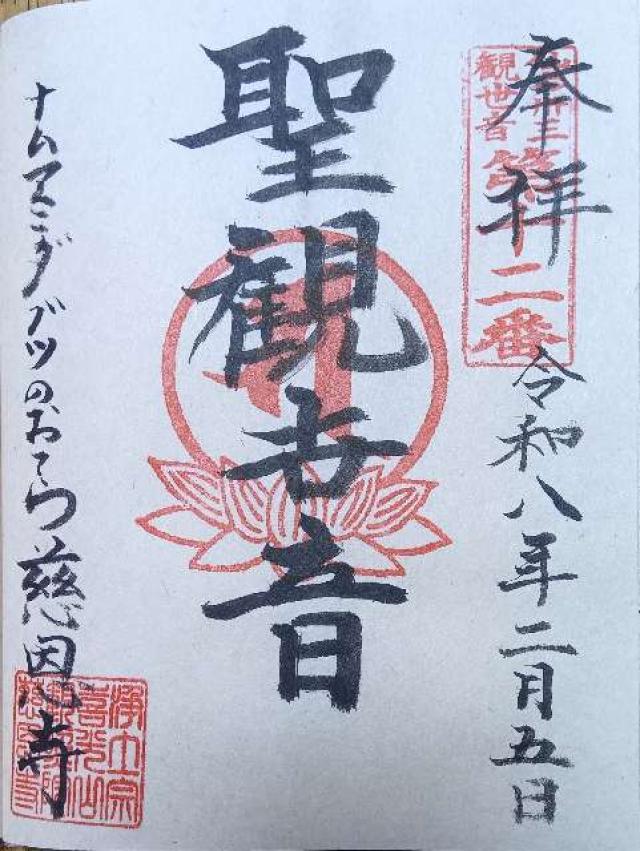 奉拝
観世音
二番
令和八年二月五日
聖観世音
ナムアミダブツのおてら
慈恩寺
浄土宗